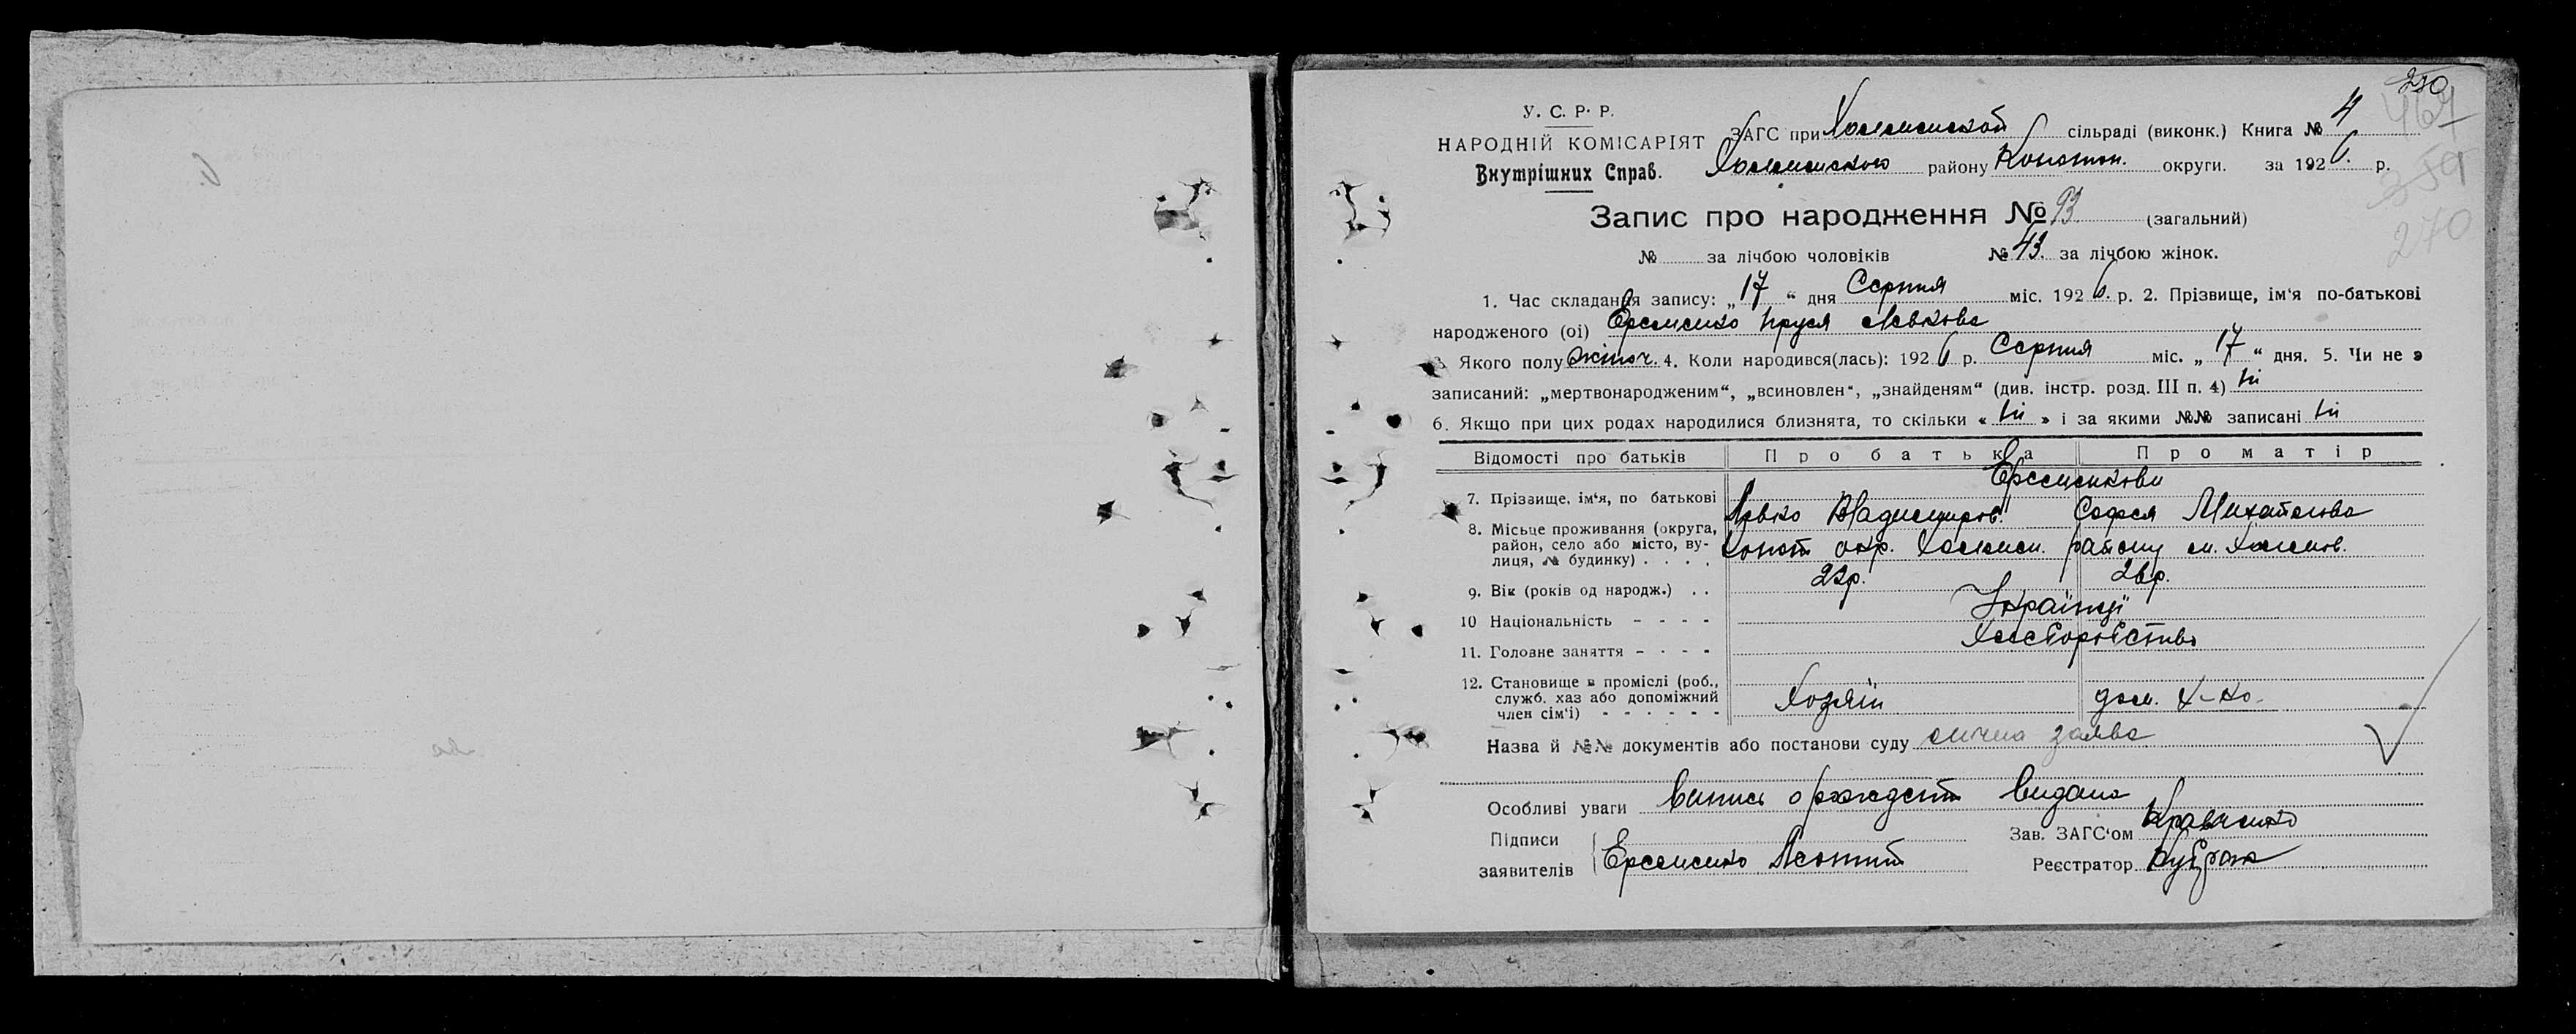 270
У. С. Р. Р.
НАРОДНІЙ КОМІСАРІЯТ
Внутрішних Справ.
ЗАГС при Холминской сільраді (виконк.) Книга № 4
Холминского району Конотоп. округи. за 1926. р.
Запис про народження № 93. (загальний)
№ за лічбою чоловіків № 43. за лічбою жінок.
1. Час складання запису: „17“ дня Серпня міс. 1926. р. 2. Прізвище, ім‘я по-батькові
народженого (ої) Еременко Левкова
3. Якого полу жіноч. 4. Коли народився(лась): 1926 р. Серпня міс. „17“ дня. 5. Чи не э
записаний: „мертвонародженим“, „всиновлен“, „знайденям“ (див. інстр. розд. III п. 4) Ні
6. Якщо при цих родах народилися близнята, то скільки « Ні » і за якими №№ записані Ні
Відомості про батьків Про батька Про матір
7. Прізвище, ім‘я, по батькові Еременкови
Левко Владимиров. Софія Михайлова
8. Місьце проживання (округа, район, село або місто, вулиця, № будинку) Конот окр. Холмин. району м. Холмів.
9. Вік (років од народж.) 22р. 26р.
10 Національність Українці
11. Головне заняття Хліборобство
12. Становище в промислі (роб., служб. хаз або допоміжний член сім‘ї) Хозяїн дом. х-ко.
Назва й №№ документів або постанови суду лична заява
Особливі уваги Випись о рождении видана
Підписи заявителів Еременко Леонтий
Зав. ЗАГС‘ом Кравченко
Реєстратор